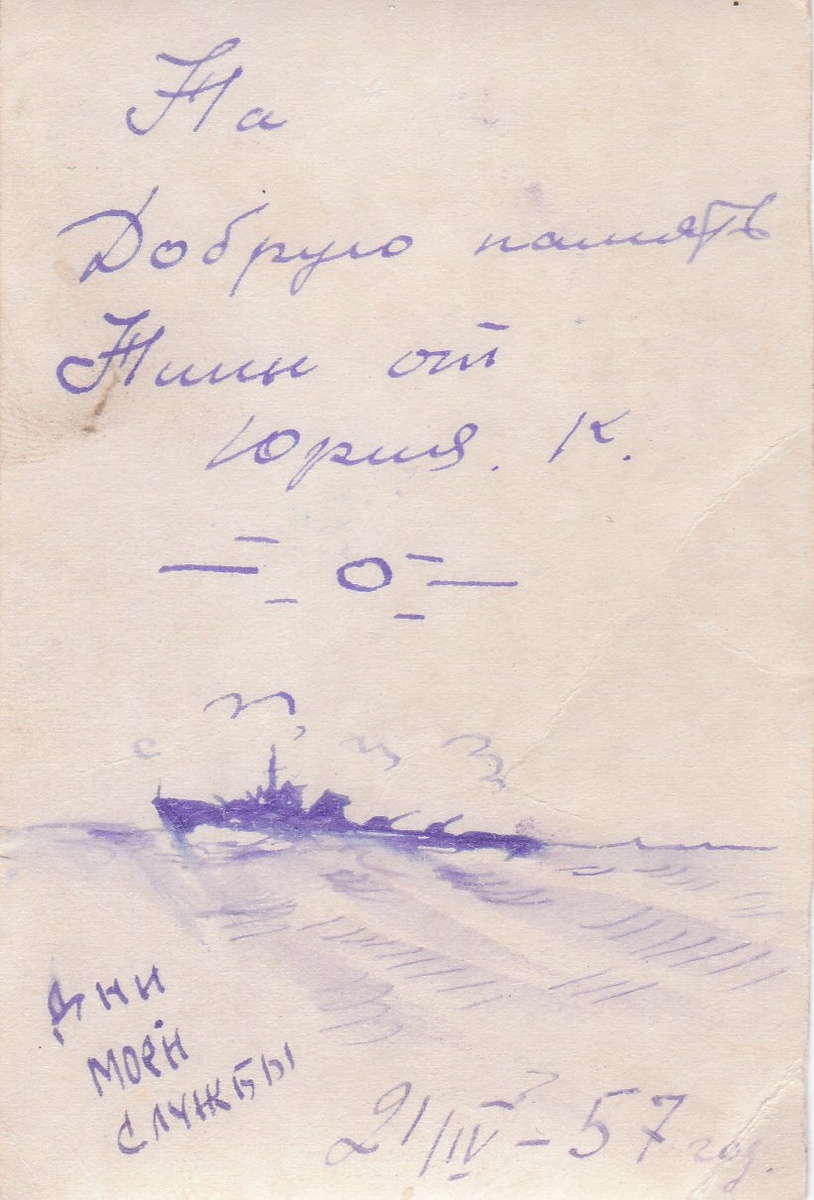 На
Добрую память
Нины от
Юрия. К.
Дни
моей
службы
21/IV - 57 год.